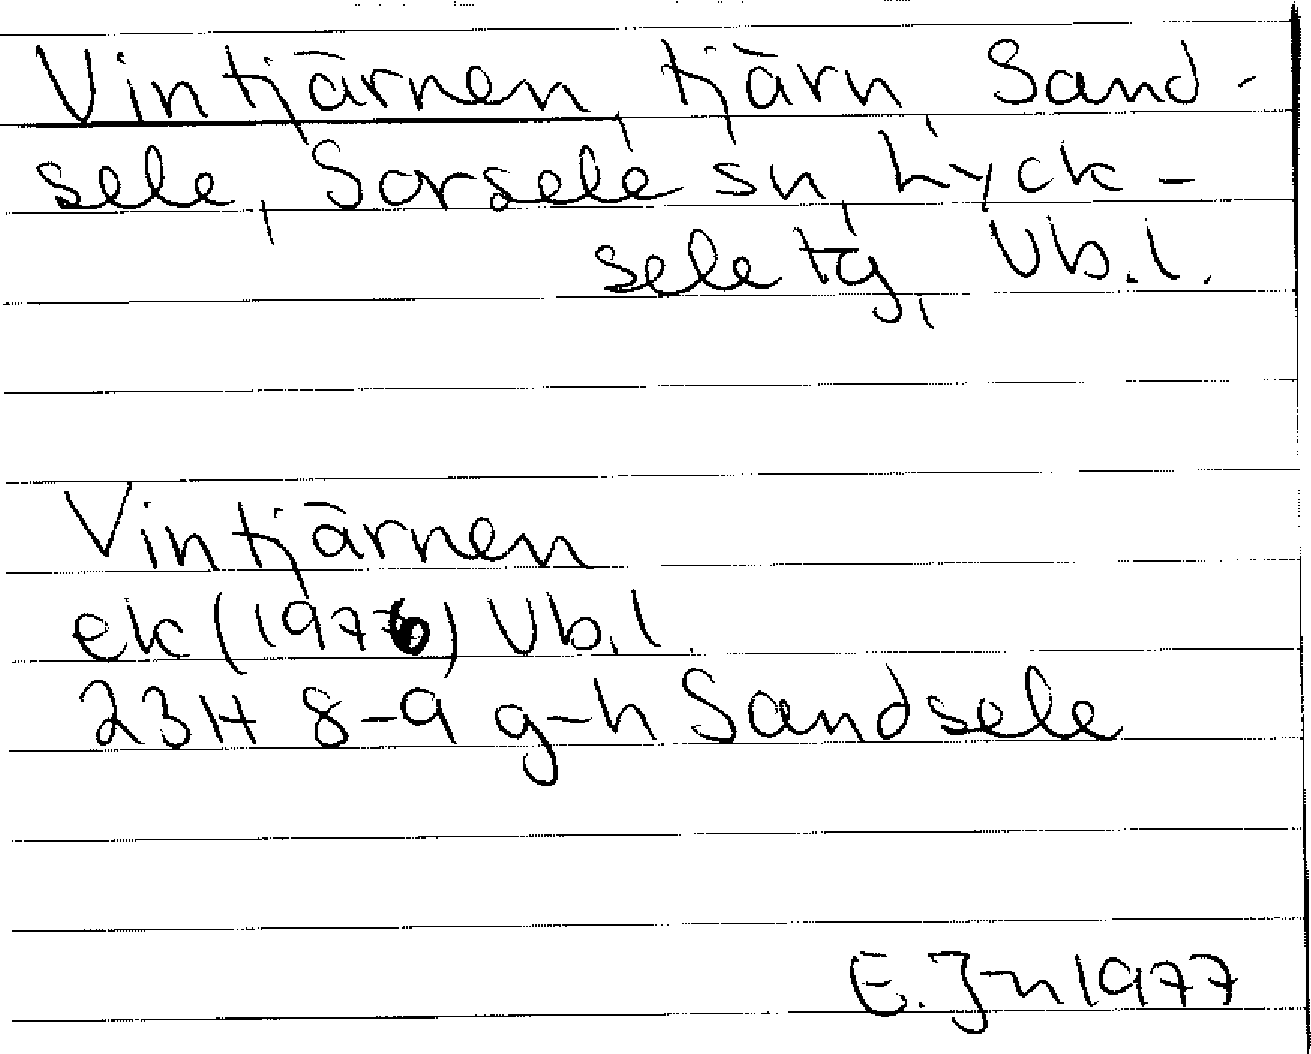 Vintjärnen, tjärn, Sand-
sele, Sorsele sn, Lyck-
sele tg, Vb.l.
Vintjärnen
ek (1976) Vb.l.
23H 8-9 g-h Sandsele
E. Jn 1977